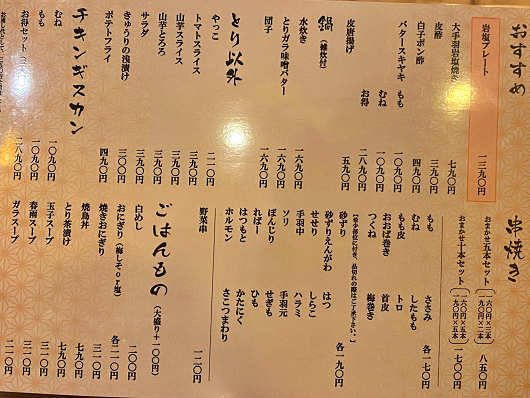 おすすめ
岩塩プレート 一三九〇円
大手羽岩塩焼き 七九〇円
皮酢 三九〇円
白子ポン酢 四九〇円
バタースキヤキ もも 一〇九〇円
むね 一〇九〇円
お得 二八九〇円
皮唐揚げ 五九〇円
鍋（雑炊付）
水炊き 一六九〇円
とりガラ味噌バター 一六九〇円
団子 一六九〇円
とり以外
やっこ 二一〇円
トマトスライス 三九〇円
山芋スライス 三九〇円
山芋とろろ 三九〇円
サラダ 三九〇円
きゅうりの浅漬け 三〇〇円
ポテトフライ 四九〇円
チキンギスカン
むね 一〇九〇円
もも 一〇九〇円
お得セット 二八九〇円
串焼き
おまかせ五本セット 一六〇円×三本 一九〇円×二本 八五〇円
おまかせ十本セット 一五〇円×五本 一九〇円×五本 一七〇〇円
もも ささみ
むね したもも 各一七〇円
もも皮 トロ
おおば巻き 首皮
つくね 梅巻き
【希少部位に付き、品切れの際はご了承下さい。】
砂ずり はつ 各一九〇円
砂ずりえんがわ
せせり しらこ
手羽中 ハラミ
ソリ 手羽元
ぼんじり せぎも
ればー ひも
はつもと かたにく
ホルモン さこつまわり
野菜串 一二〇円
ごはんもの（大盛り＋一〇〇円）
白めし 一〇〇円
おにぎり（梅しそor塩） 各二一〇円
焼きおにぎり 三一〇円
焼鳥丼 七九〇円
とり茶漬け 七九〇円
玉子スープ 三一〇円
春雨スープ 三一〇円
ガラスープ 二一〇円